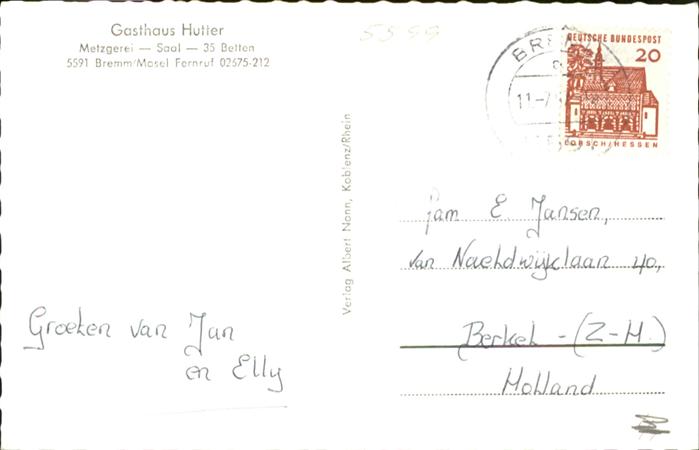 Gasthaus Hutter
Metzgerei — Saal — 35 Betten
5591 Bremm/Mosel Fernruf 02675-212
5599
BRE
11.-7.
DEUTSCHE BUNDESPOST
20
LORSCH/HESSEN
Verlag Albert Nonn, Koblenz/Rhein
Fam E. Jansen,
van Naeldwijklaan 40,
Berkel - (Z-H.)
Holland
Groeten van Jan
en Elly